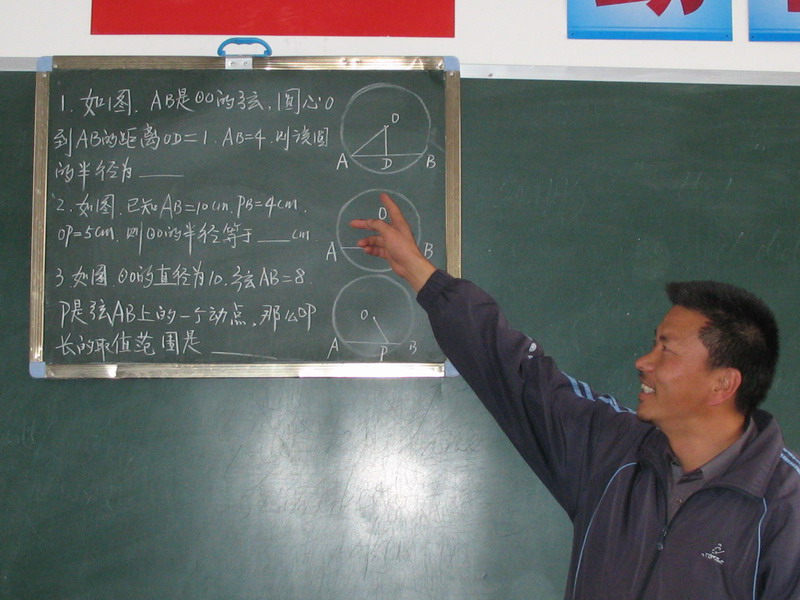 1. 如图, AB是⊙O的弦, 圆心O
到AB的距离OD=1, AB=4, 则该圆
的半径为____
O
A D B
2. 如图, 已知AB=10cm, PB=4cm,
OP=5cm, 则⊙O的半径等于____cm.
O
A B
3. 如图, ⊙O的直径为10, 弦AB=8,
P是弦AB上的一个动点, 那么OP
长的取值范围是____
O
A P B